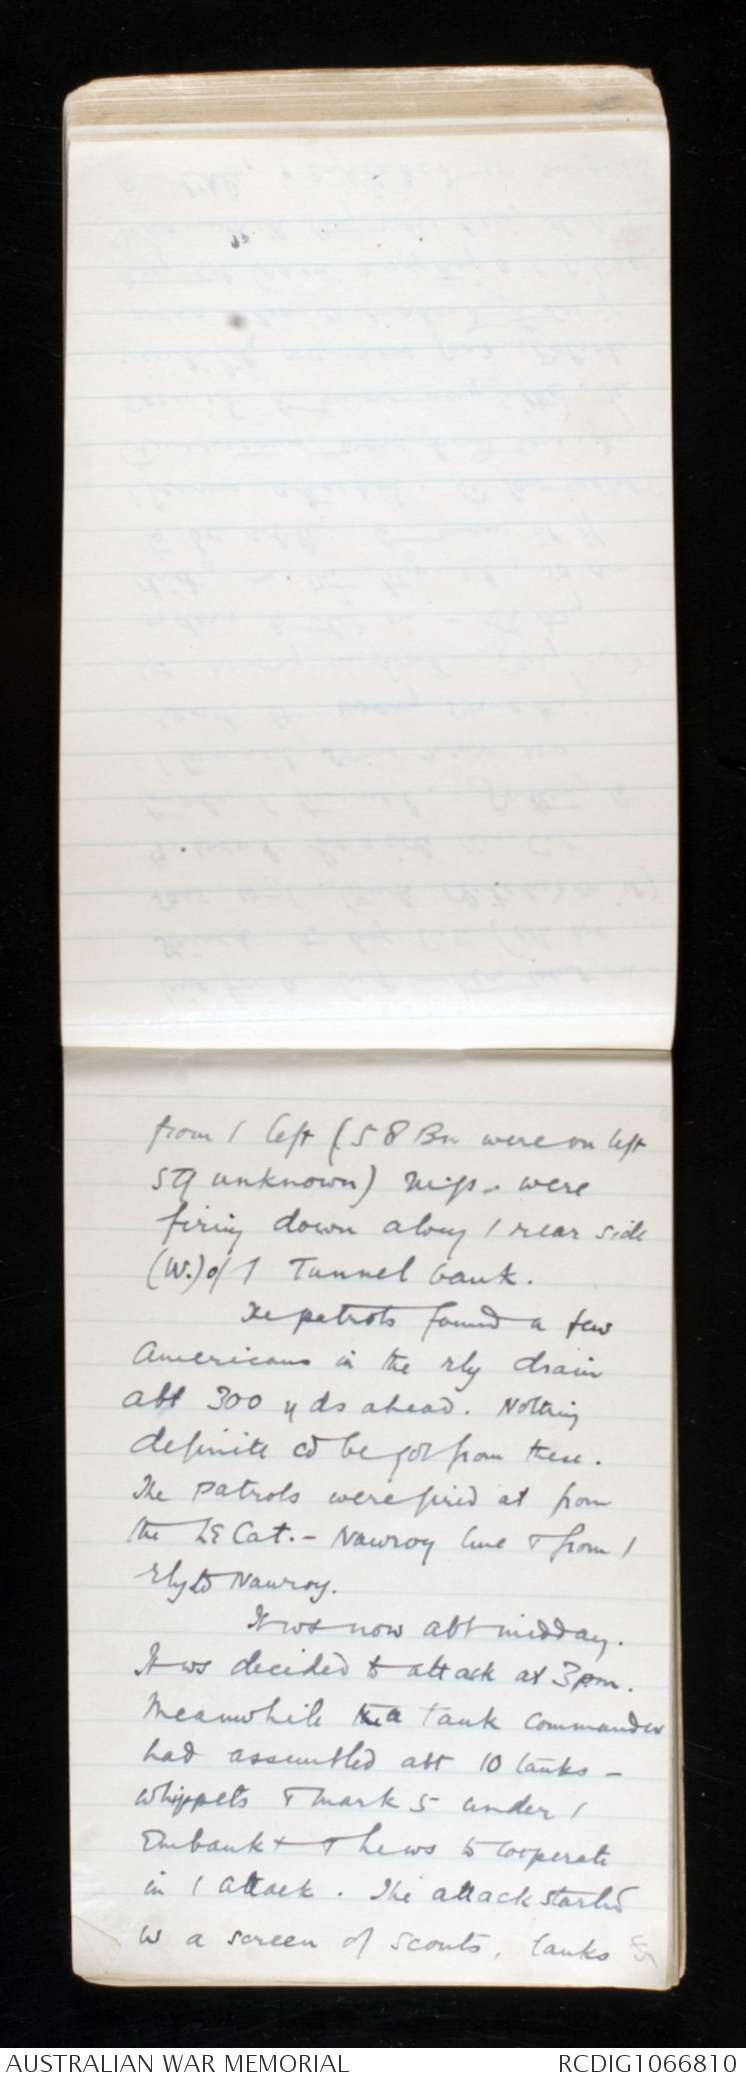 from / left (58 Bn were on left
59 unknown) m.g.s were
firing down along / rear side
(W.) of / Tunnel bank.
The patrols found a few
Americans in the rly drain
abt 300 yds ahead. Nothing
definite cd be got from these.
The patrols were fired at from
the Le Cat. - Nauroy line & from /
rly to Nauroy.
It ws now abt midday.
It ws decided to attack at 3pm.
Meanwhile a tank commander
had assembled abt 10 tanks -
whippets & mark 5 under /
Embankt & he ws to cooperate
in / attack. The attack started
w a screen of scouts, tanks
AUSTRALIAN WAR MEMORIAL
RCDIG1066810